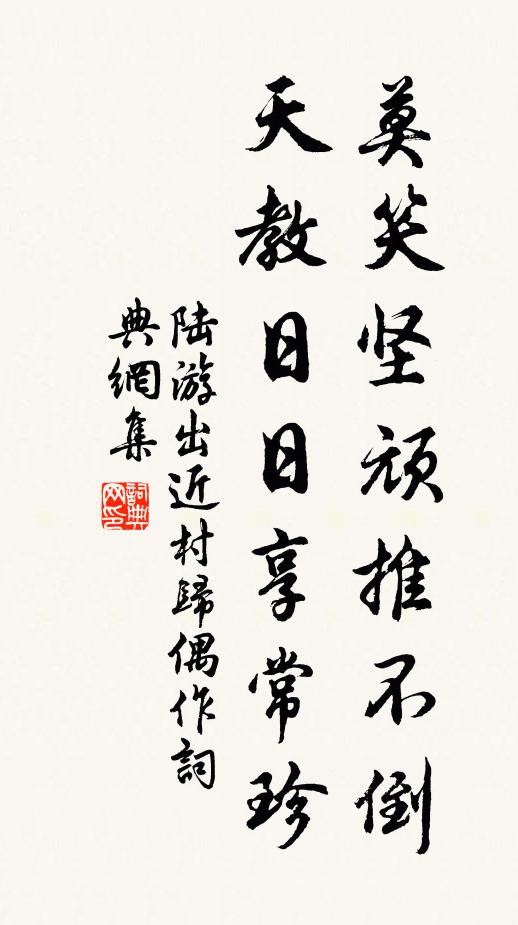 莫笑坚顽推不倒
天教日日享常珍
陆游出近村歸偶作詞
典網集
詞典
网印